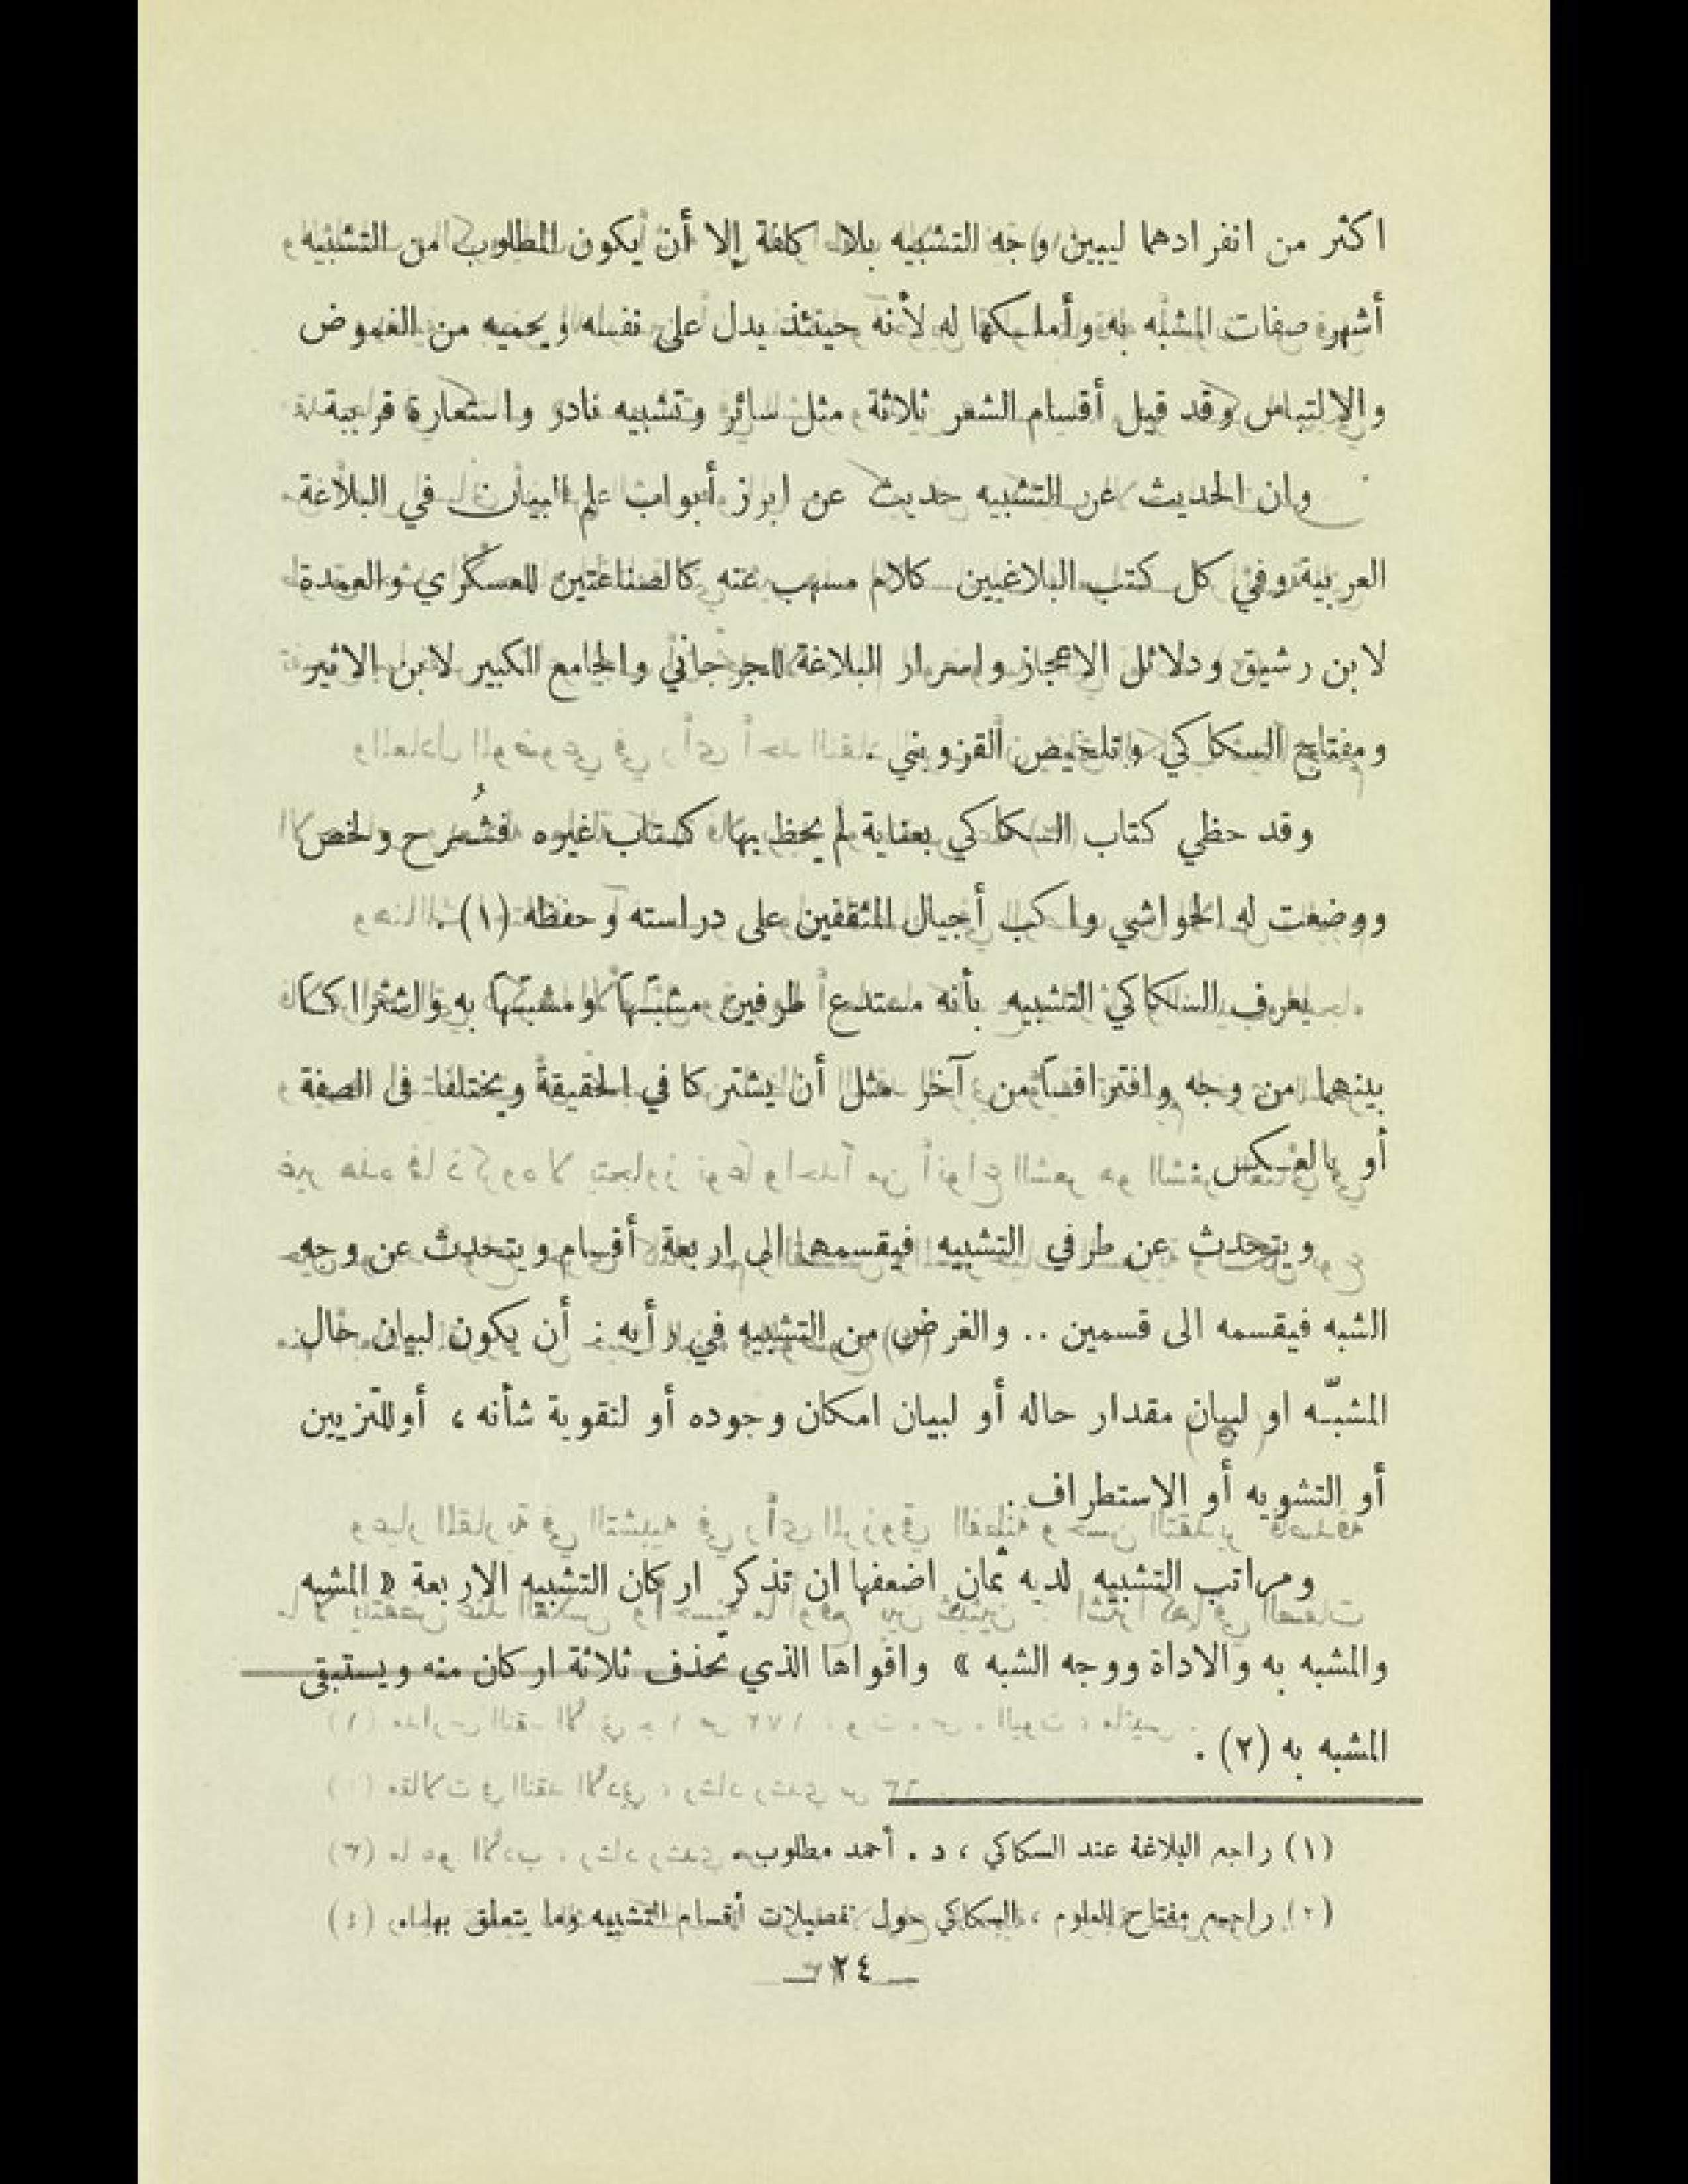 اكثر من انفرادهما ليبين وجه التشبيه بلا كلفة إلا أن يكون المطلوب من التشبيه
أشهر صفات المشبه به وأملكها له لأنه حينئذ يدل على نفسه ويحميه من الغموض
والالتباس وقد قيل أقسام الشعر ثلاثة مثل سائر وتشبيه نادر واستعارة قريبة
وان الحديث عن التشبيه حديث عن ابرز أبواب علم البيان في البلاغة
العربية وفي كل كتب البلاغيين كلام مسهب عنه كالصناعتين للعسكري والعمدة
لابن رشيق ودلائل الاعجاز واسرار البلاغة للجرجاني والجامع الكبير لابن الاثير
ومفتاح السكاكي وتلخيص القزويني .
وقد حظي كتاب السكاكي بعناية لم يحظ بها كتاب غيره فشُرح ولخص
ووضعت له الحواشي واكب أجيال المثقفين على دراسته وحفظه (١) .
يعرف السكاكي التشبيه بأنه مستدع طرفين مشبّهاً ومشبّهاً به واشتراكاً
بينهما من وجه وافتراقاً من آخر مثل أن يشتركا في الحقيقة ويختلفا في الصفة
أو بالعكس
ويتحدث عن طرفي التشبيه فيقسمها الى اربعة أقسام ويتحدث عن وجه
الشبه فيقسمه الى قسمين .. والغرض من التشبيه في رأيه : أن يكون لبيان حال
المشبّه او لبيان مقدار حاله أو لبيان امكان وجوده أو لتقوية شأنه ، أو للتزيين
أو التشويه أو الاستطراف .
ومراتب التشبيه لديه ثمان اضعفها ان تذكر اركان التشبيه الاربعة « المشبه
والمشبه به والاداة ووجه الشبه » واقواها الذي تحذف ثلاثة اركان منه ويستبقى
المشبه به (٢) .
(١) راجع البلاغة عند السكاكي ، د . أحمد مطلوب
(٢) راجع مفتاح العلوم ، السكاكي حول تفصيلات أقسام التشبيه وما يتعلق بها .
— ٢٤ —